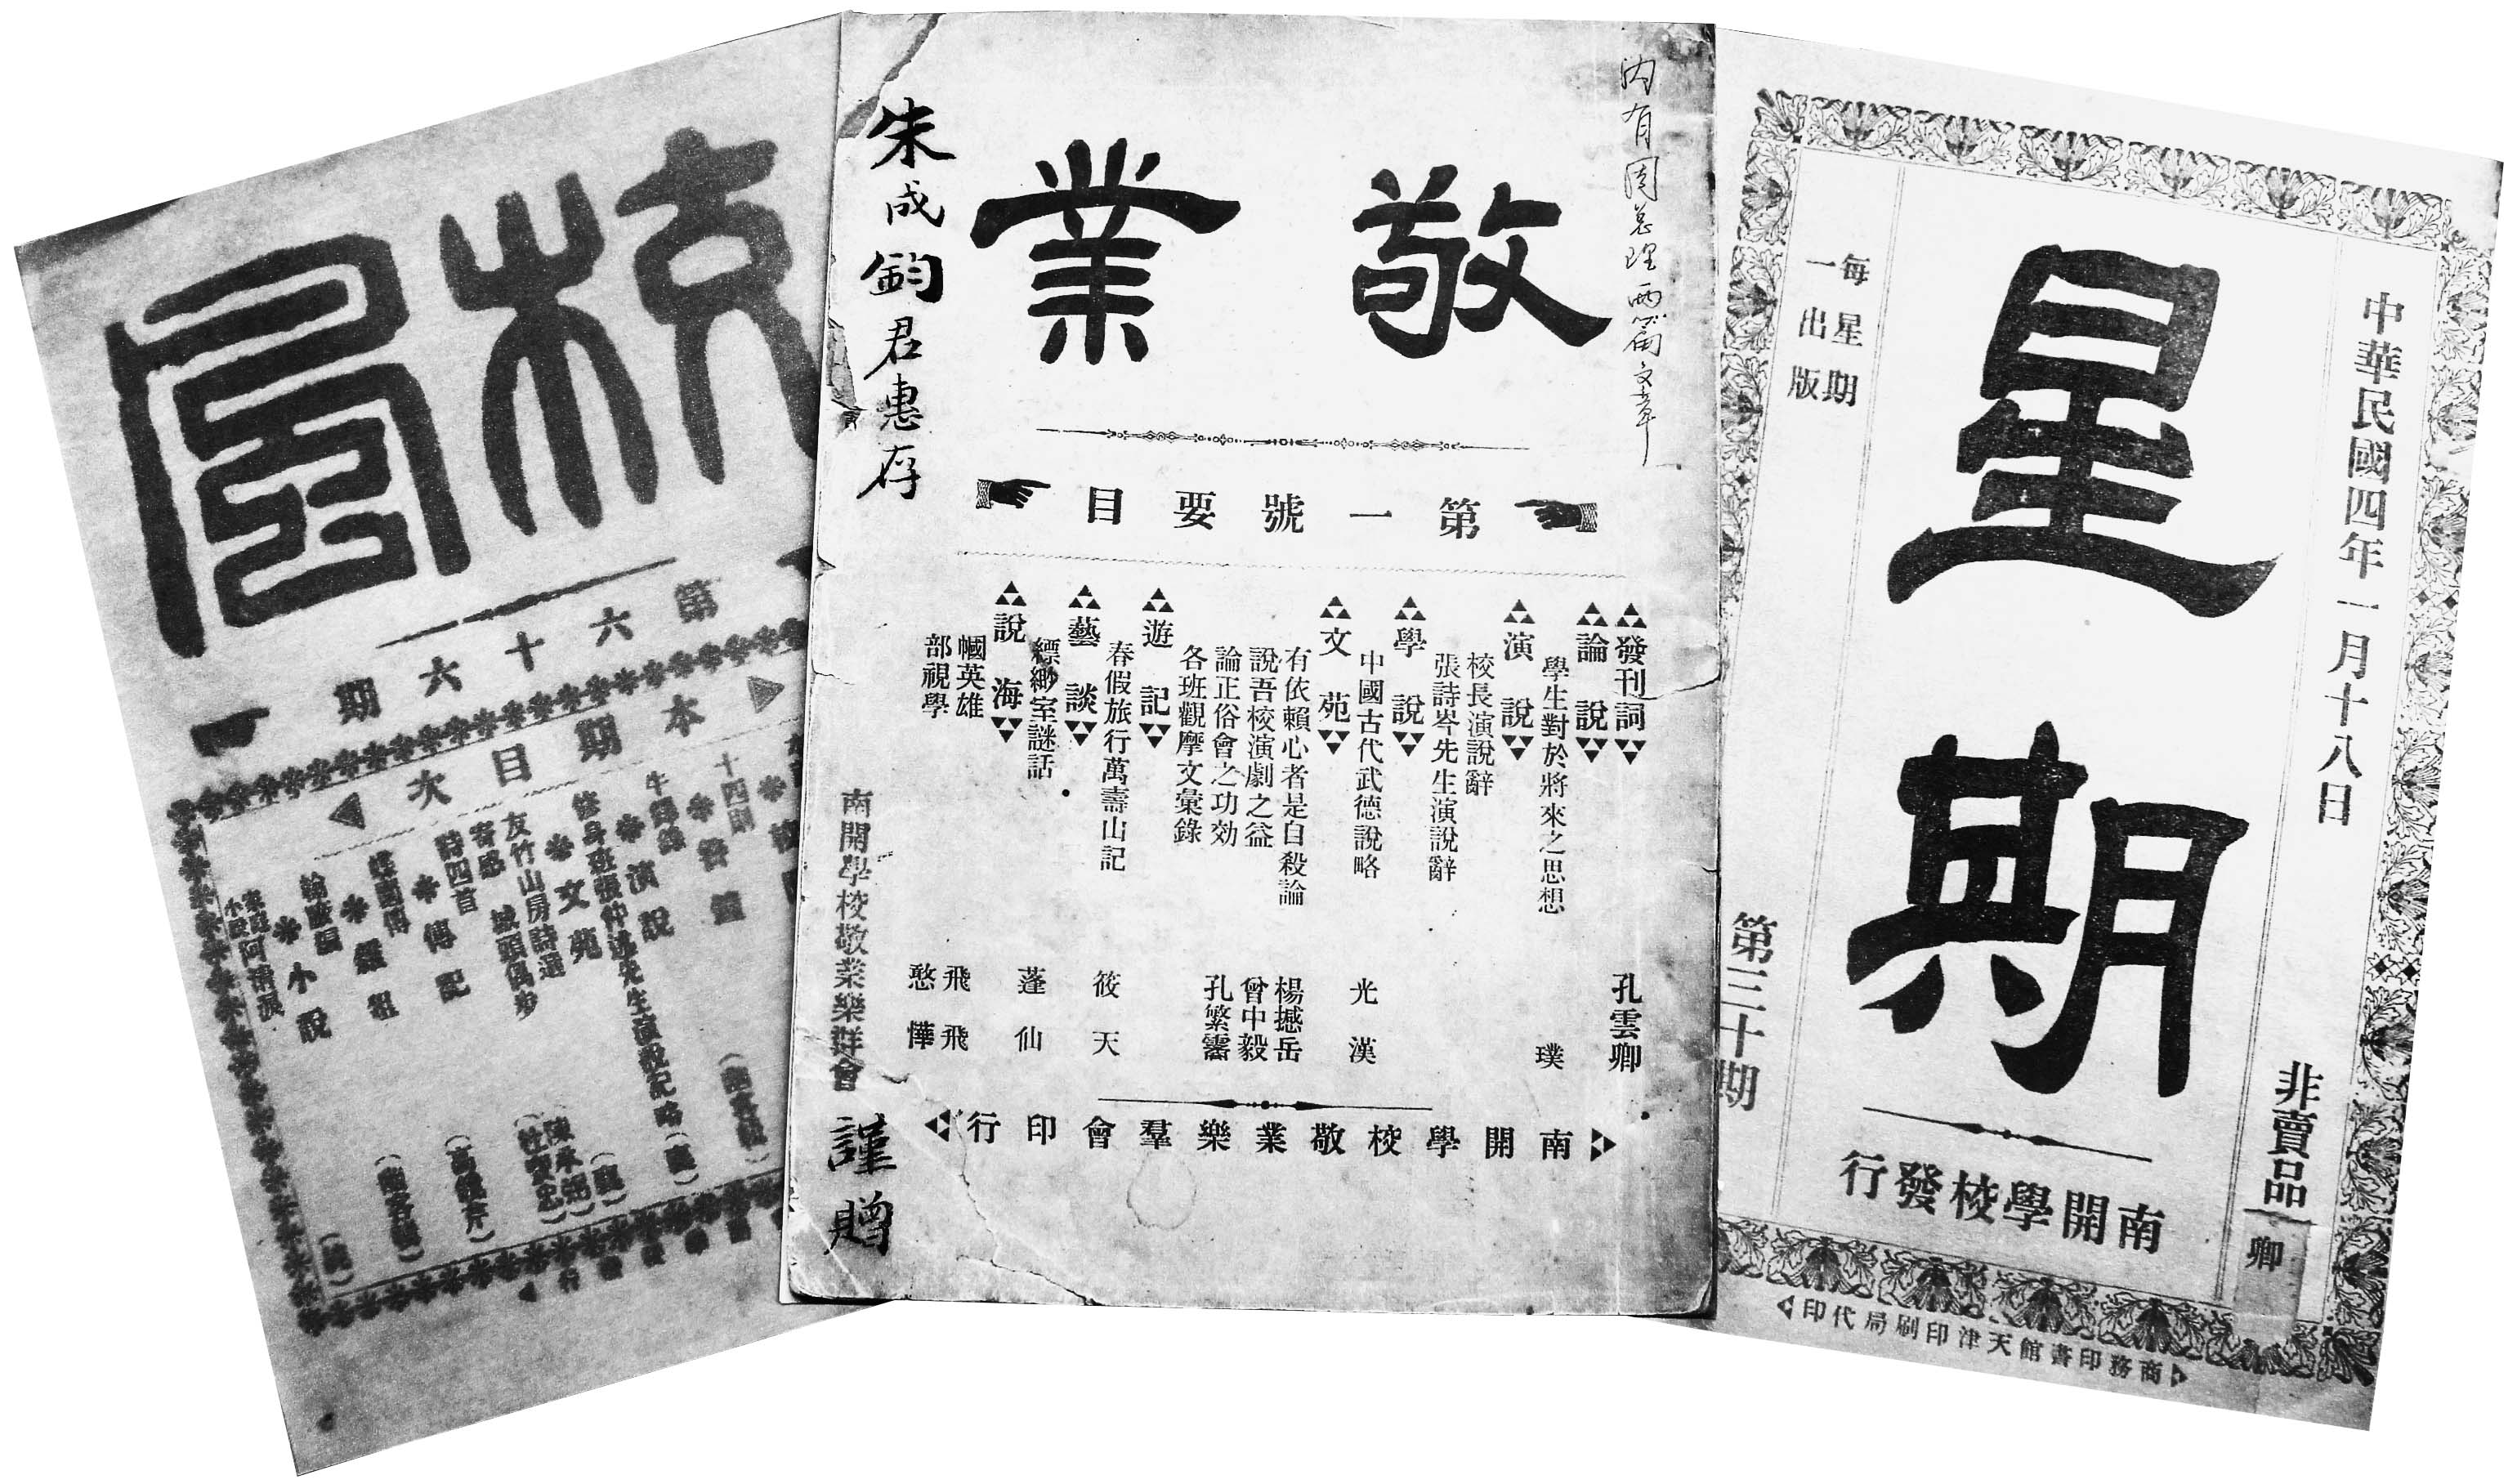 校風
第六十六期
本期目次
十四則
演說
修身班張仲述先生演說記略
文苑
友竹山房詩選
城頭偶步
寄感
詩四首
傳記
小說
內有周總理兩篇文章
敬業
第一號要目
發刊詞 孔雲卿
論說
學生對於將來之思想 璞
演說
校長演說辭
張詩岑先生演說辭
學說
中國古代武德說略 光漢
文苑
有依賴心者是自殺論 楊撼岳
說吾校演劇之益 曾中毅
論正俗會之功効 孔繁霱
各班觀摩文彙錄
遊記
春假旅行萬壽山記 筱天
藝談
縹緲室謎話 蓬仙
說海
巾幗英雄 飛飛
部視學 憨憚
南開學校敬業樂羣會印行
朱成鈞君惠存
南開學校敬業樂群會
謹贈
中華民國四年一月十八日
非賣品
卿
星期
南開學校發行
每星期
一出版
第三十期
商務印書館天津印刷局代印